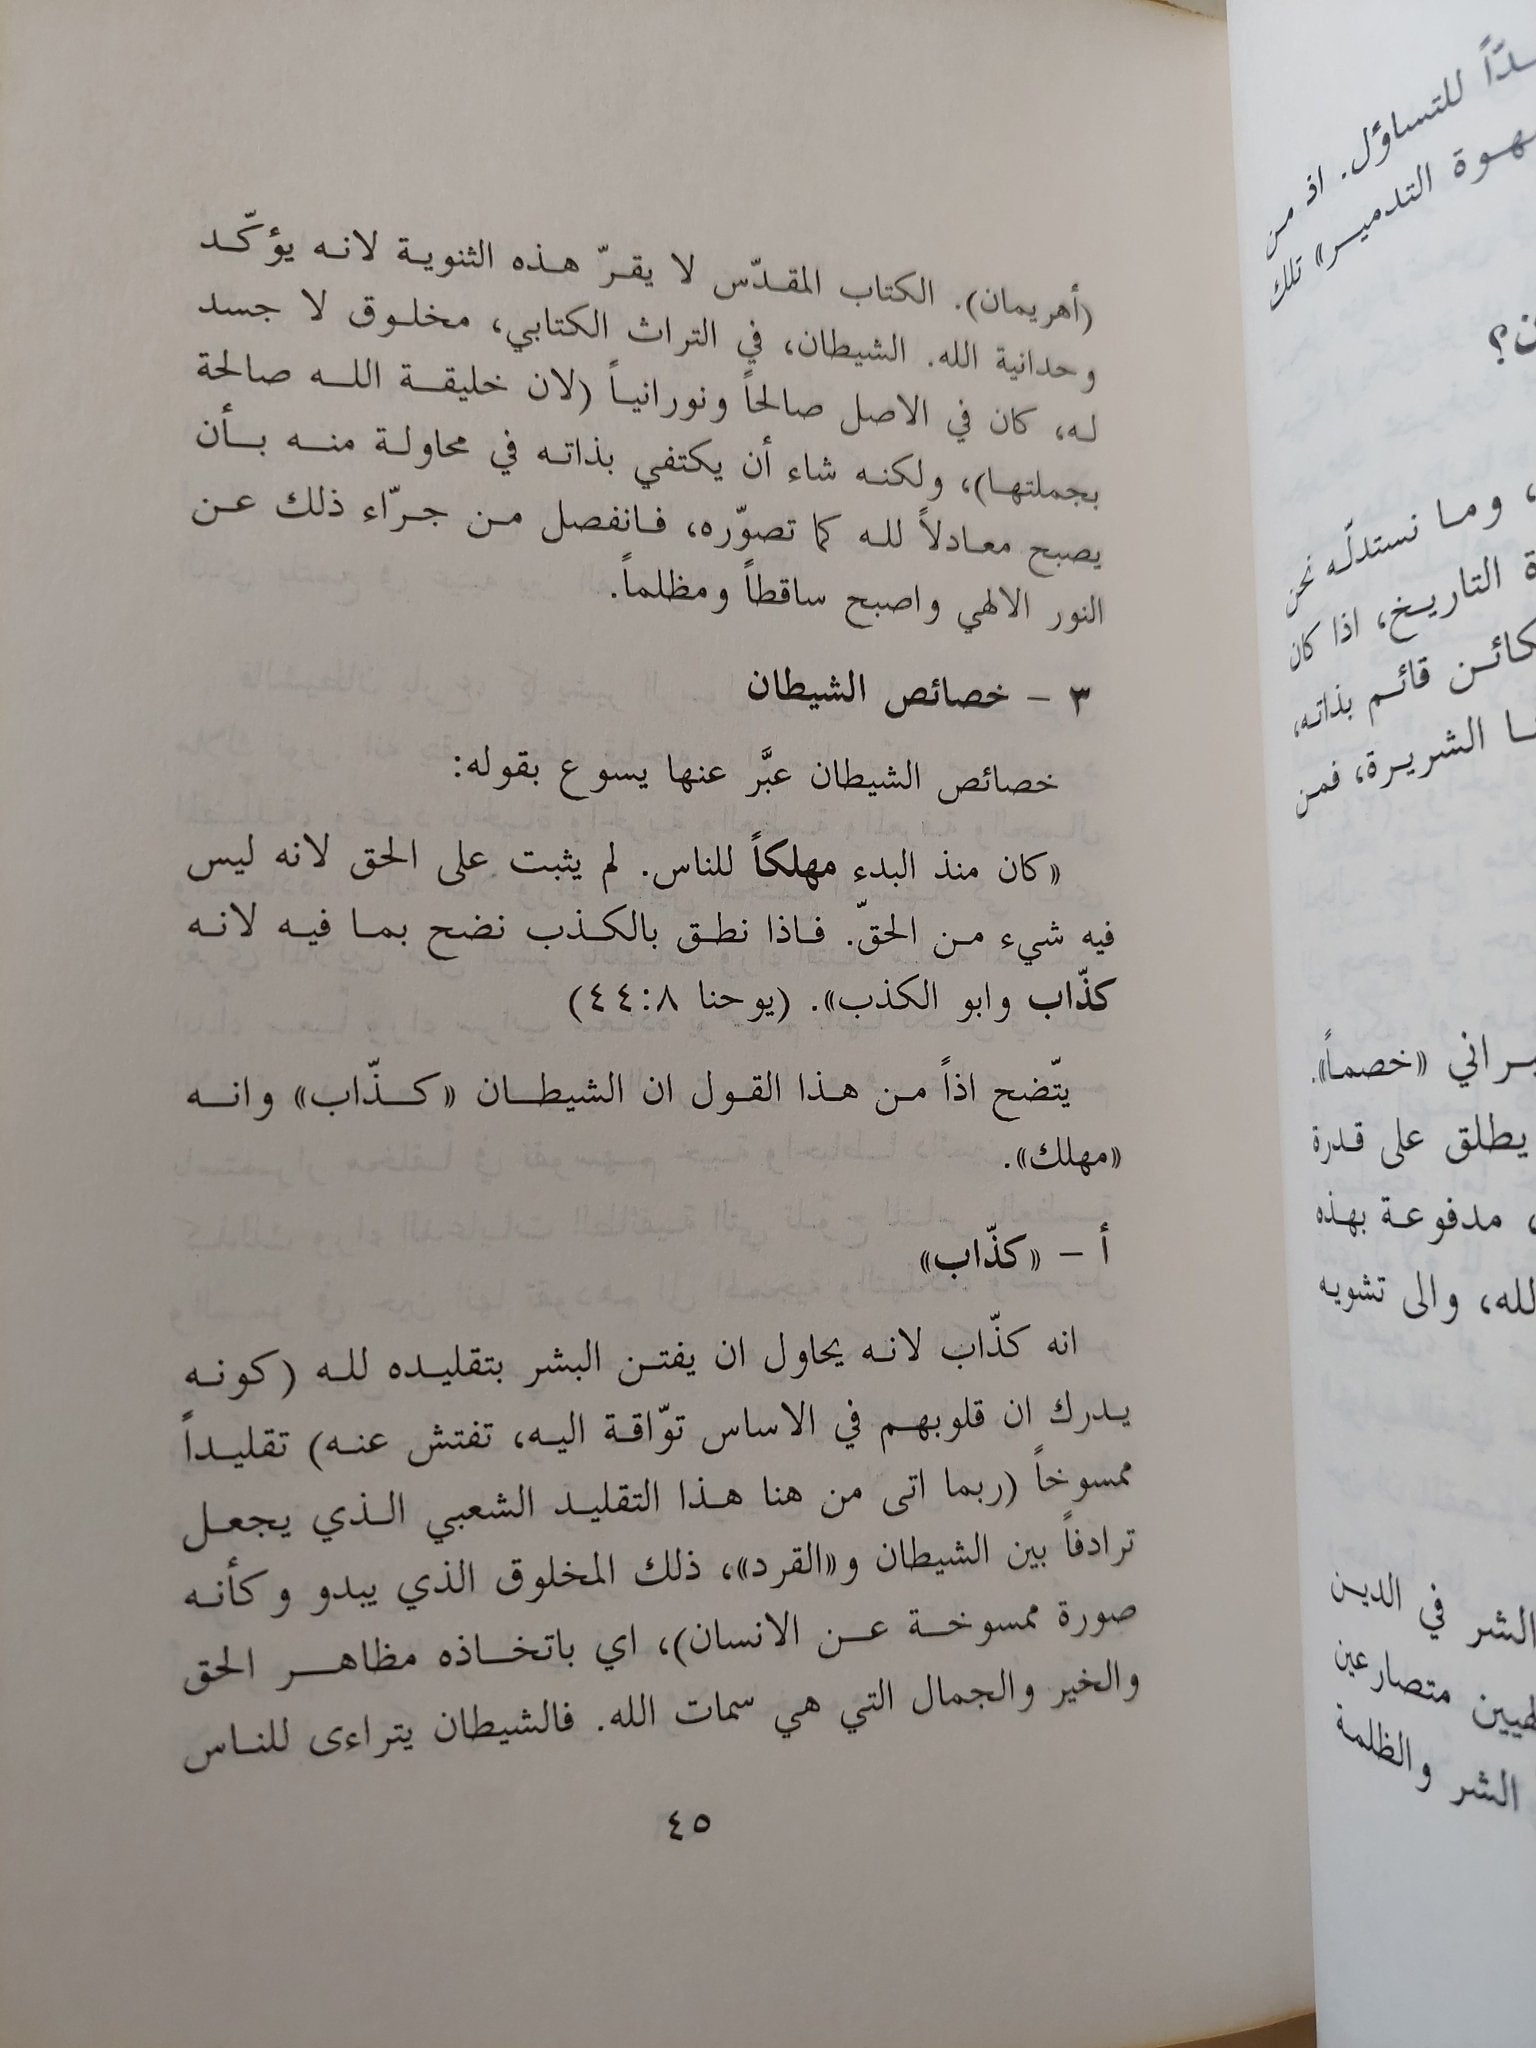 ـدّاً للتساؤل. اذ من
ـهوة التدمير» تلك
ن؟
، وما نستدلّه نحن
ة التاريخ، اذا كان
كائن قائم بذاته،
ـا الشريرة، فمن
ـراني «خصماً».
يطلق على قدرة
، مدفوعة بهذه
لله، والى تشويه
الشر في الدين
ـهيين متصارعين
الشر والظلمة
(أهريمان). الكتاب المقدّس لا يقرّ هذه الثنوية لانه يؤكّد
وحدانية الله. الشيطان، في التراث الكتابي، مخلوق لا جسد
له، كان في الاصل صالحاً ونورانياً (لان خليقة الله صالحة
بجملتها)، ولكنه شاء أن يكتفي بذاته في محاولة منه بأن
يصبح معادلاً لله كما تصوّره، فانفصل من جرّاء ذلك عن
النور الالهي واصبح ساقطاً ومظلماً.
٣ - خصائص الشيطان
خصائص الشيطان عبَّر عنها يسوع بقوله:
«كان منذ البدء مهلكاً للناس. لم يثبت على الحق لانه ليس
فيه شيء من الحقّ. فاذا نطق بالكذب نضح بما فيه لانه
كذّاب وابو الكذب». (يوحنا ٨:٤٤)
يتّضح اذاً من هذا القول ان الشيطان «كذّاب» وانه
«مهلك».
أ - «كذّاب»
انه كذّاب لانه يحاول ان يفتن البشر بتقليده لله (كونه
يدرك ان قلوبهم في الاساس توّاقة اليه، تفتش عنه) تقليداً
ممسوخاً (ربما اتى من هنا هذا التقليد الشعبي الذي يجعل
ترادفاً بين الشيطان و«القرد»، ذلك المخلوق الذي يبدو وكأنه
صورة ممسوخة عن الانسان)، اي باتخاذه مظاهر الحق
والخير والجمال التي هي سمات الله. فالشيطان يتراءى للناس
٤٥